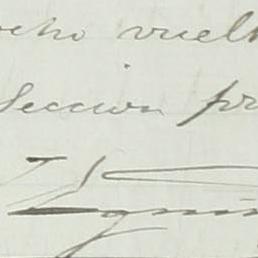 ocho vuelt
Seccion pr